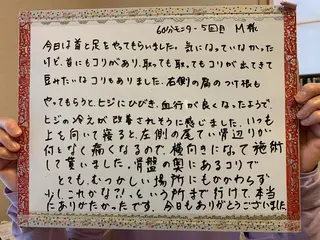 60分モニター 5回目 M様
今日は首と足をやってもらいました。気になっていなかった
けど、首にもコリがあり、取っても取ってもコリが出てきて
豆みたいなコリもありました。右側の肩のつけ根も
やってもらうと、ヒジにひびき、血行が良くなったようで、
ヒジの冷えが改善されそうに感じました。いつも
上を向いて寝ると、左側の尾てい骨辺りが
何となく痛くなるので、横向きになって施術
して貰いました。骨盤の奥にあるコリで
とてもむつかしい場所にもかかわらず
少し「これかな?!」という所まで行けて、本当
にありがたかったです。今日もありがとうございました